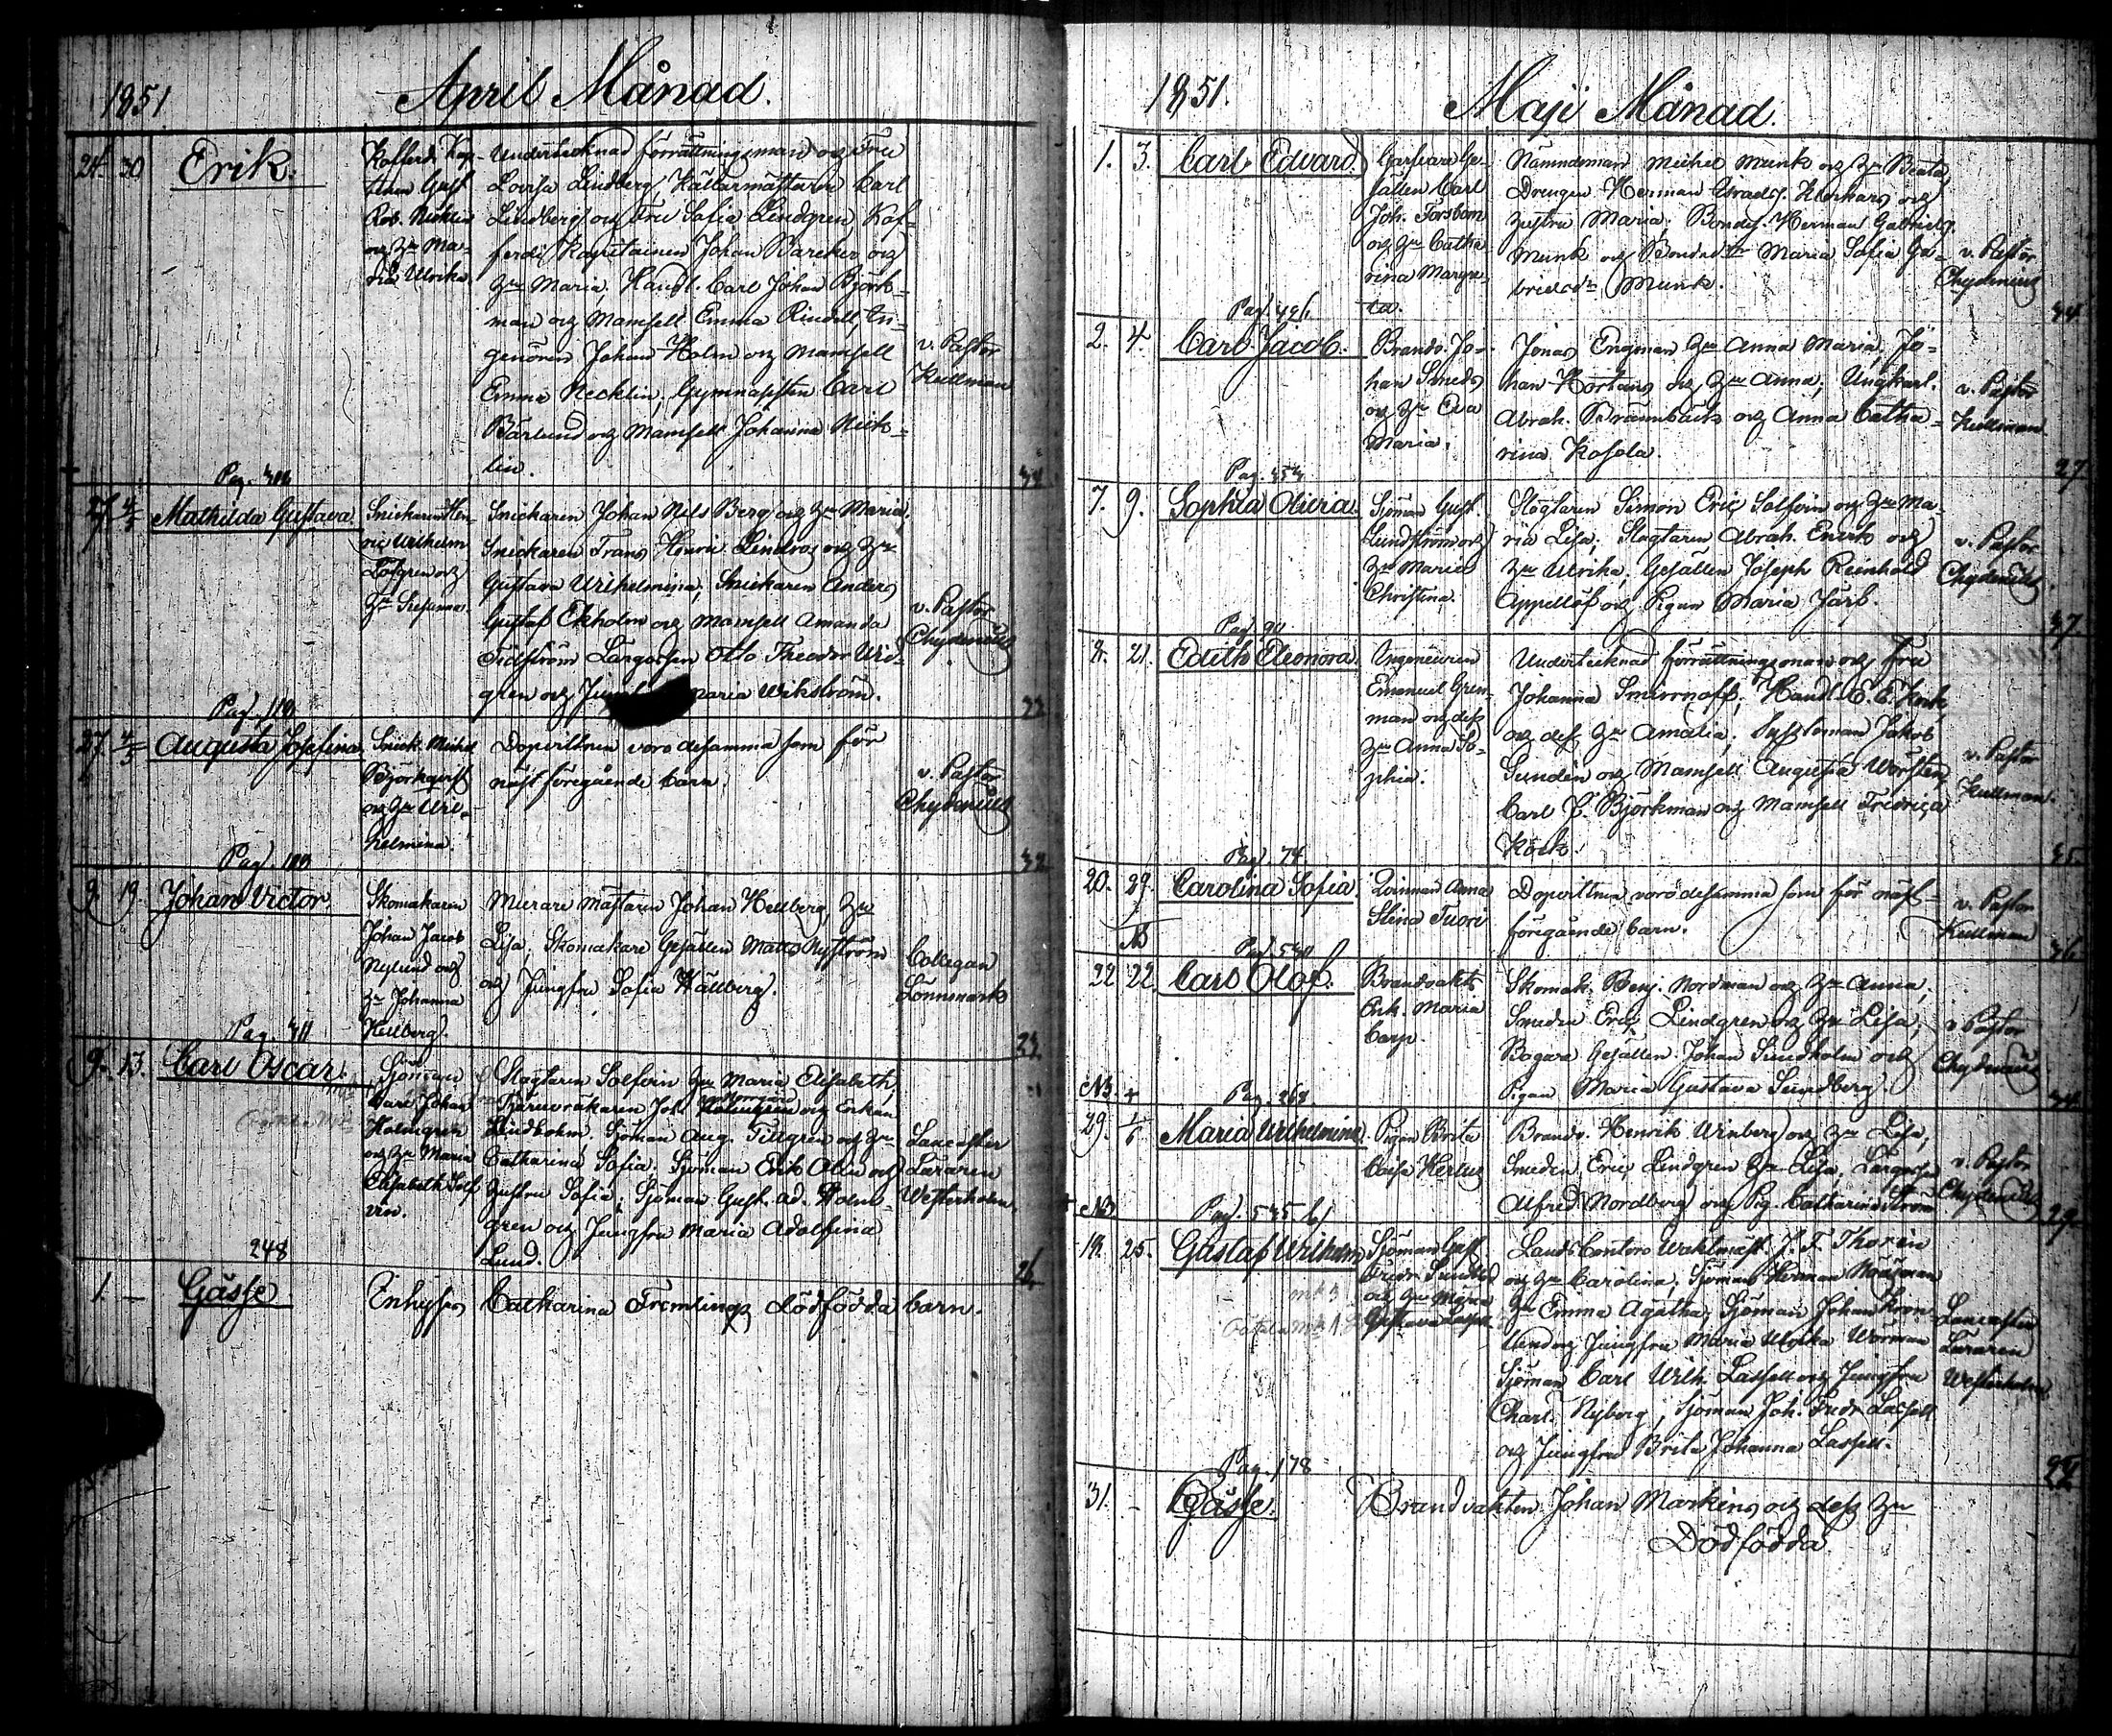 1851
April Månad.
24. 30
Erik.
Kofferdi Kap-
Gust
Rob. Necklin
och Hu Ma-
ria Ulrika.
Undertecknad förrättningsman och Fru
Lovisa Lindberg, Källarmästaren Carl
Lindberg och Fru Sofia Lindgren, Kof-
ferdi Kapitainen Johan Bareker och
Hu Maria, Handl. Carl Johan Björk-
man och Mamsell Emma Rindell, In-
genören Johan Holm och Mamsell
Emma Necklin, Gymnasisten Carl
Bärlund och Mamsell Johanna Neck-
lin.
v. Pastor
Kullman
Pag.
27. 4/5
Mathilda Gustava.
Snickaren Hen-
ric Wilhelm
Löfgren och
Hu Susanna.
Snickaren Johan Nils Berg och Hu Maria,
Snickaren Frans Henric Lindros och Hu
Gustava Wilhelmina, Snickaren Anders
Gustaf Ekholm och Mamsell Amanda
Tidström Largossen Otto Theodor Wid-
gren och Maria Wikström.
v. Pastor
Chydenius
Pag.
27. 4/5
Augusta Josefina.
Snick. Michel
Björkqvist
och Hu Wil-
helmina.
Dopvittnen voro desamma som för
näst föregående barn.
v. Pastor
Chydenius
32
Pag.
9. 19.
Johan Victor.
Skomakaren
Johan Jacob
Nylund och
Hu Johanna
Hellberg.
Murare mästaren Johan Hellberg, Hu
Lisa, Skomakare Gesällen Matts Nyström
och Jungfru Sofia Hällberg.
Collegan
Lönnmark
23.
Pag. 311
9. 13.
Carl Oscar.
Sjöman
Carl Johan
Holmgren
och Hu Maria
Elisabeth Solf
vin.
Slagtaren Solfvin Hu Maria Elisabeth,
Tjäruvräkaren Joh. och Enkan
Lindholm. Sjöman Aug. Tillgren och Hu
Catharina Sofia. Sjöman Erik Alin och
Hustru Sofia; Sjöman Gust. Ad. Holm-
gren och Jungfru Maria Adolfina
Lund.
Lancaster
Läraren
Westerholm.
26
248
1. —
Gåsse
Inhyses Catharina Fremlings Dödfödda barn.
1851.
Maji Månad.
1. 3.
Carl Edvard.
Garfvare Ge-
sällen Carl
Joh. Forsbom
och Hu Catha-
rina Margre-
ta.
Nämndeman Michel Munk och Hu Beata,
Drengen Herman och
Hustru Maria; Bondes. Herman Gabriels.
Munk och Bonded:r Maria Sofia Ga-
brielsd:r Munk.
v. Pastor
Chydenius
Pag. 426
2. 4.
Carl Jacob.
Brandv. Jo-
han Smeds
och Hu Eva
Maria.
Jonas Engman Hu Anna Maria, Jo-
han och Hu Anna; Ungkarl.
Abrah. och Anna Catha-
rina Kosola
v. Pastor
Kullman
27.
Pag.
7. 9.
Sophia Olivia.
Sjöman Gust.
Lundström och
Hu Maria
Christina.
Slagtaren Simon Eric Solfvin och Hu Ma-
ria Lisa; Slagtaren Abrah. Enérk och
Hu Ulrika; Gesällen Joseph Reinhold
Appellöf och Pigan Maria Järf.
v. Pastor
Chydenius
37.
Pag. 90
21.
Edith Eleonora.
Ingeneuren
Emanuel Gren-
man och dess
Hu Anna So-
phia.
Undertecknad förrättningsman och Fru
Johanna Smirnoff, Handl. C. E.
och dess Hu Amalia, Syssloman Jakob
Sundén och Mamsell Augusta Worsten,
Carl J. Björkman och Mamsell Fredrica
Kock.
v. Pastor
Kullman.
35.
Pag. 74.
20. 29.
Carolina Sofia.
Qvinnan Anna
Stina Tuori
Dopvittnen voro desamma som för näst
föregående barn.
v. Pastor
Kullman
36
NB
Pag. 540
22 22
Carl Olof.
Brandvakts
Enk. Maria
Carp.
Skomak. Benj. Nordman och Hu Anna,
Smeden Eric Lindgren och Hu Lisa,
Bagare Gesällen Johan Sundholm och
Pigan Maria Gustava Sundberg.
v. Pastor
Chydenius
NB +
Pag. 268.
29. 1/6
Maria Wilhelmina
Pigan Brita
Caisa Hertus
Brandv. Henrik Winberg och Hu Lisa,
Smeden Eric Lindgren Hu Lisa, Largosse
Alfred Nordberg och Pig. Catharina Ström
v. Pastor
Chydenius
29.
NB
Pag. 535.
25.
Gustaf Wilhelm
Sjöman Gust.
Fredr. Sundlöf
och Hu Maria
Gustava Lassell.
Lands Contors Waktmäst. J. F. Thorin
och Hu Carolina, Sjöman Herman
Hu Emma Agatha; Sjöman Johan Kron-
lund och Jungfru Maria Ulrika Wörman
Sjöman Carl Wilh. Lassell och Jungfru
Charl. Nyberg; Sjöman Joh. Fredr. Lassell
och Jungfru Brita Johanna Lassell.
Lancaster
Läraren
Westerholm
Pag. 178
31. —
Gåsse.
Brandvakten Johan Markens och dess Hu
Dödfödda